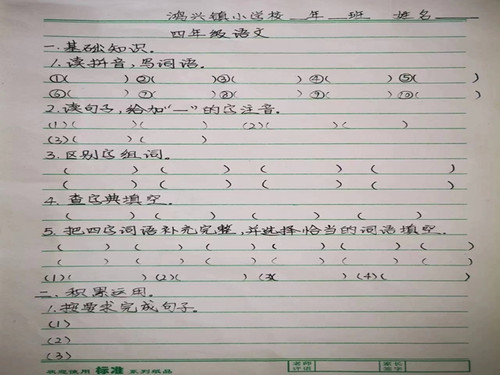 鸿兴镇小学校__年__班 姓名____
四年级语文
一.基础知识。
1.读拼音,写词语。
①( ) ②( ) ③( ) ④( ) ⑤( )
⑥( ) ⑦( ) ⑧( ) ⑨( ) ⑩( )
2.读句子,给加“一”的字注音。
(1)( )( ) (2)( )( )
(3)( )( )
3.区别字组词。
( ) ( ) ( ) ( ) ( )
( ) ( ) ( ) ( ) ( )
4.查字典填空。
( ) ( ) ( ) ( ) ( ) ( )
5.把四字词语补充完整,并选择恰当的词语填空。
( ) ( ) ( ) ( ) ( ) ( ) ( ) ( )
( ) ( ) ( ) ( ) ( ) ( ) ( ) ( )
(1)( ) (2)( ) (3)( ) (4)( )
二.积累运用。
1.按要求完成句子。
(1)
(2)
(3)
欢迎使用 标准 系列纸品 老师评语 家长签字